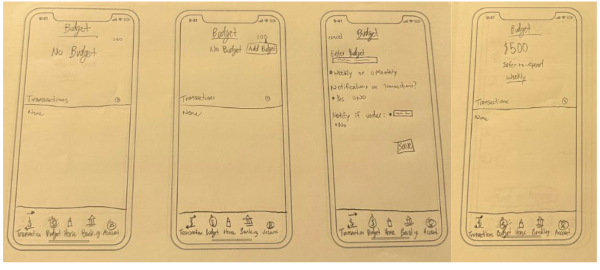 9:41
Budget
No Budget
Transactions
None
Transaction Budget Home Banking Account
9:41
Budget
No Budget Add Budget
Transactions
None
Transaction Budget Home Banking Account
9:41
cancel Budget
Enter Budget
Weekly or Monthly
Notifications on Transactions?
Yes No
Notify if under:
No
Save
Transaction Budget Home Banking Account
9:41
Budget
$500
Safe-to-spend
Weekly
Transactions
None
Transactions Budget Home Banking Account